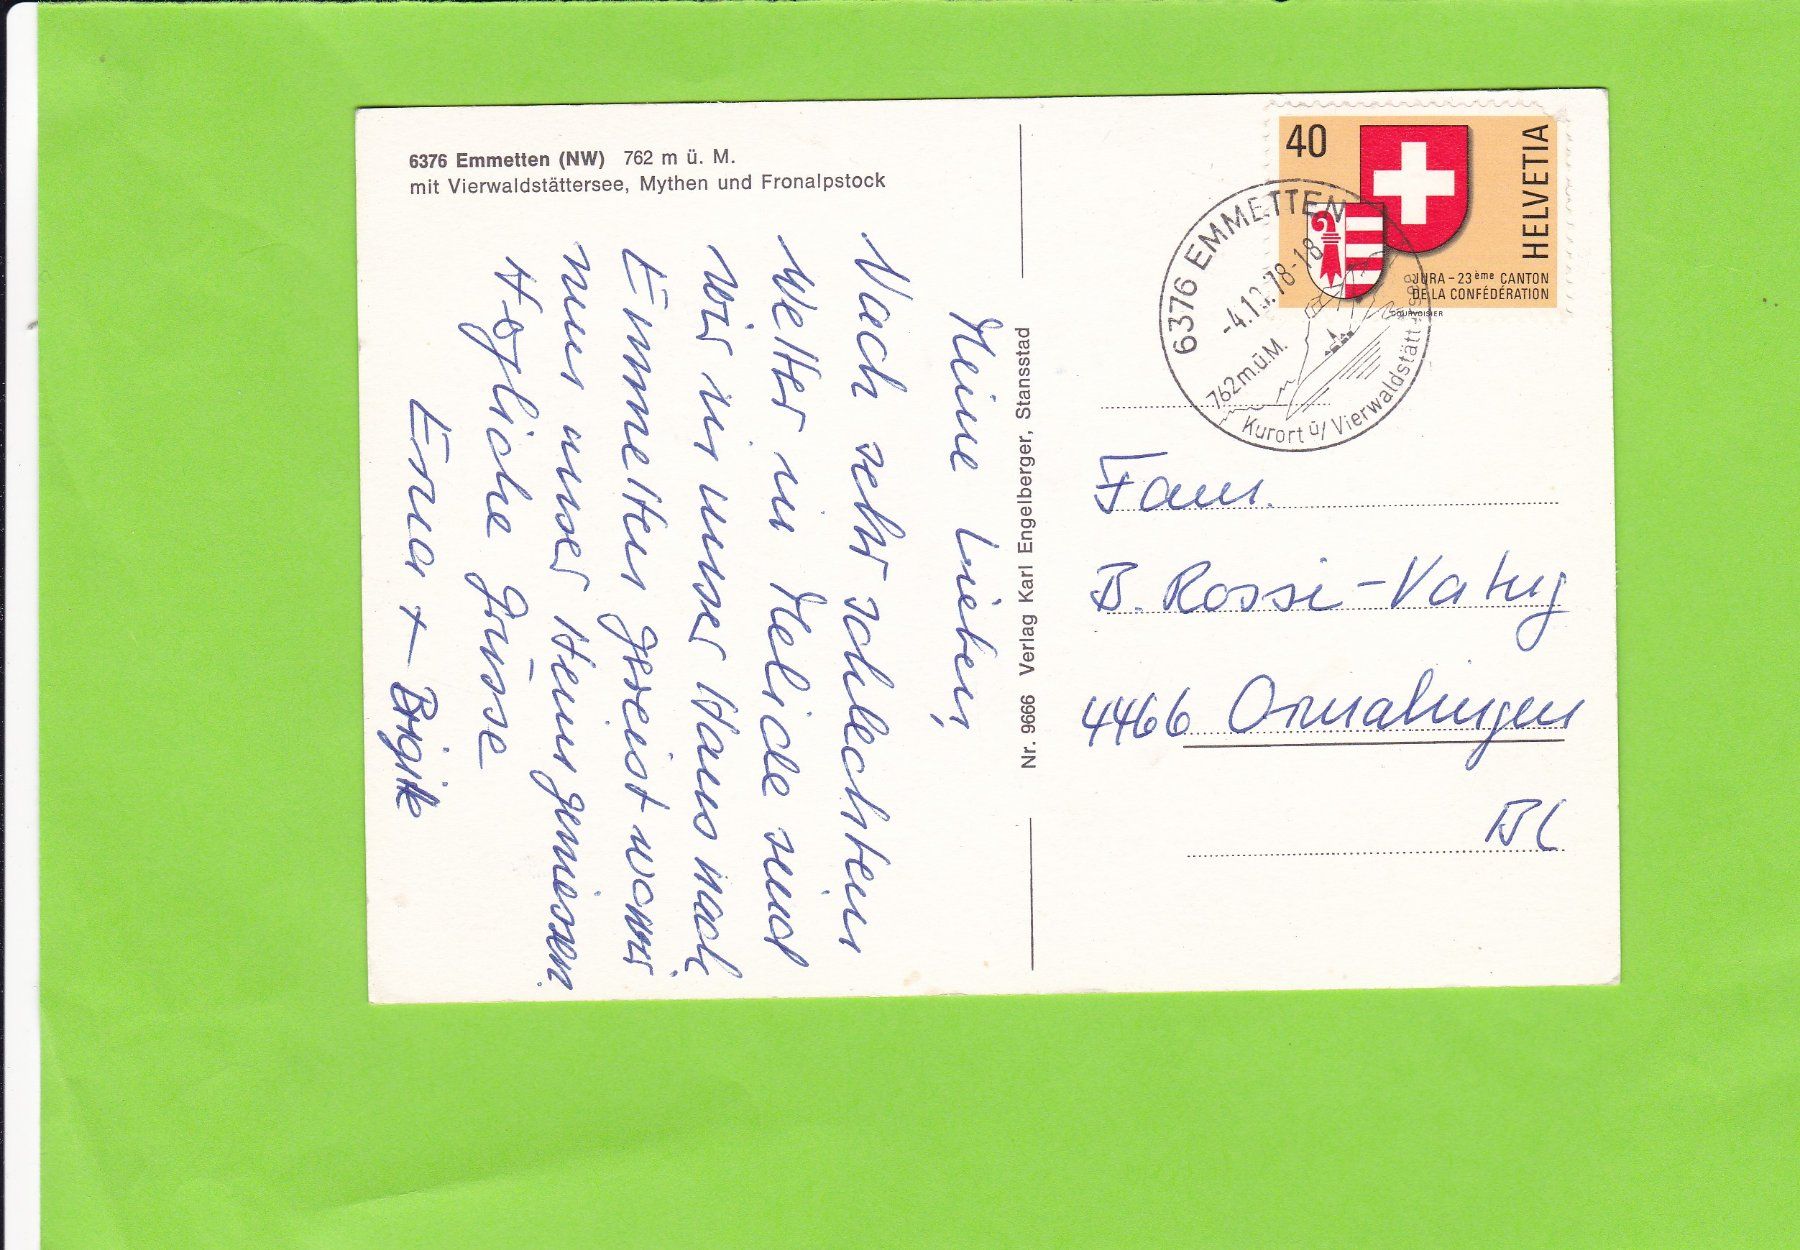 6376 Emmetten (NW) 762 m ü. M.
mit Vierwaldstättersee, Mythen und Fronalpstock
Meine Lieben,
Nach sehr schlechtem
Wetter in Melide sind
wir in unser Haus nach
Emmetten gereist wo wir
nun unser Heim geniessen.
Hrzliche Grüsse
Erna + Brigitte
Nr. 9666 Verlag Karl Engelberger, Stansstad
40
HELVETIA
JURA - 23ème CANTON
DE LA CONFÉDÉRATION
COURVOISIER
6376 EMMETTEN
-4.10.78-18
762 m.ü.M.
Kurort ü/ Vierwaldstättersee
Fam.
B. Rossi-
4466 Ormalingen
BL